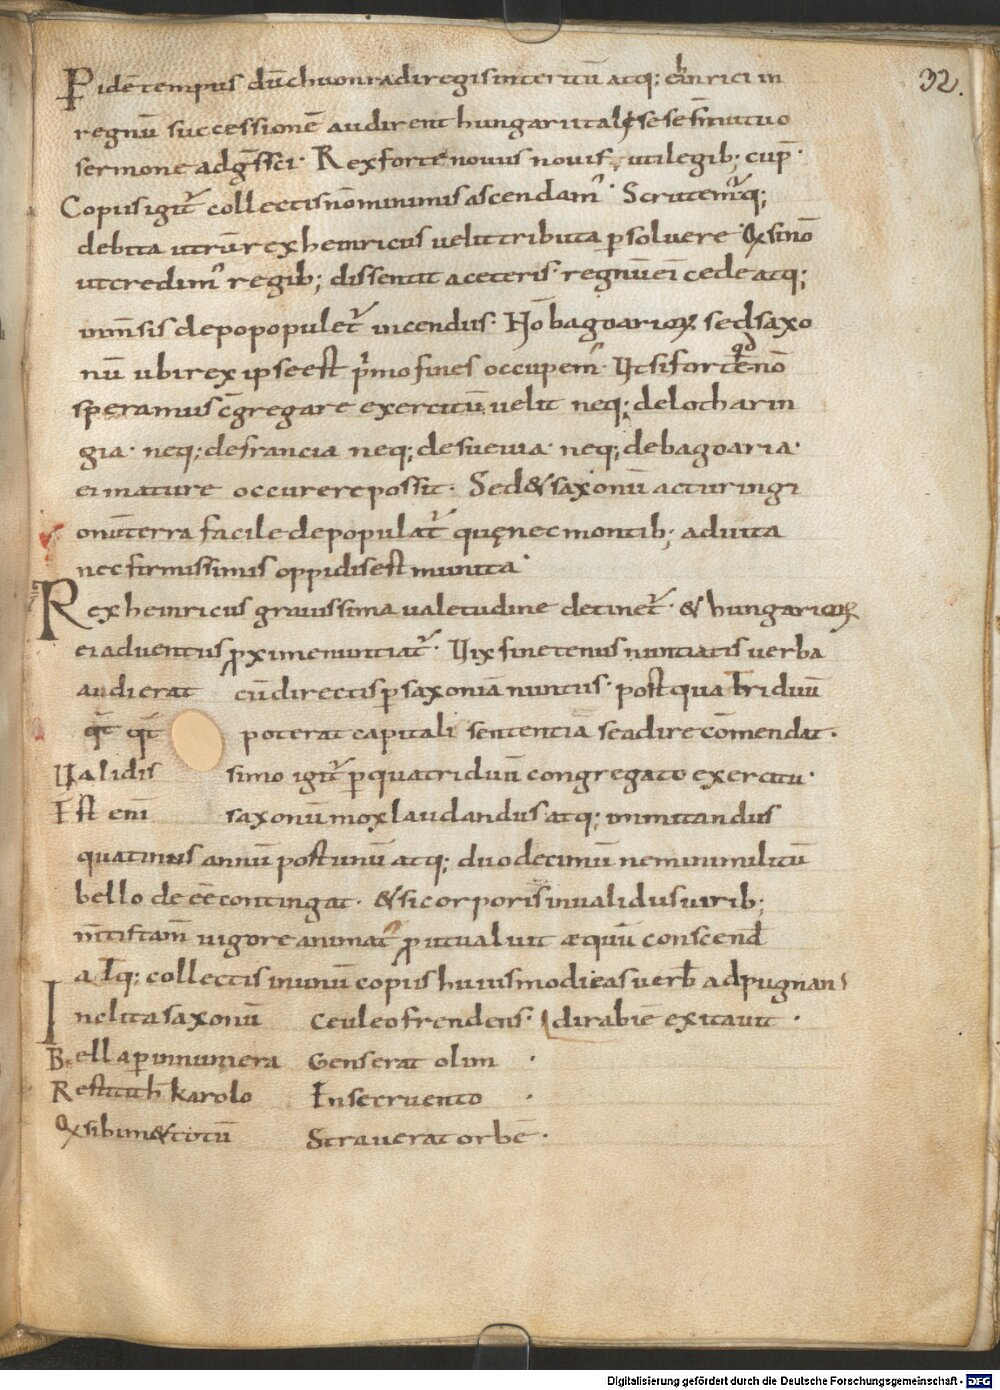 32.
P idē tempus dū chuonradi regis interitū atq; einrici in
regnū successionē audirent hungari tali se se mutuo
sermone adgssi. Rex forte novus novis, uti legib; cup̄.
Copiis igit̄ collectis nō minimis ascendam̄. Scrutem̄q;
debita utrū rex heinricus velit tributa p̄solvere. Q si nō
ut credim̄ regib; dissentit a ceteris. regnū ei cede atq;
inmsis depopopulet̄ incendiis. Hō bagoarioꝝ sed saxo
nū ubi rex ipse est p̄mo fines occupem̄. Ut si forte qđ nō
speramus c̄gregare exercitū velit neq; de lotharin
gia. neq; de francia neq; de suevia. neq; de bagoaria.
ei mature occurere possit. Sed & saxonū ac turingi
onū terra facile depopulat̄ quę nec montib; adiuta
nec firmissimis oppidis est munita.
Rex heinricus gravissima valetudine detinet̄. & hungarioꝝ
ei adventus p̄xime nuntiat̄. Vix fine tenus nuntiatis verba
audierat cū directis p saxoniā nuntiis. post qua triduū
qt qt poterat capitali sententia se adire cōmendat.
Validis simo igit̄ p quatriduū congregato exercitu.
Est enī saxonū mox laudandus atq; inmitandus
quatinus annū post unū atq; duodecimū nemini militū
bello deēē contingat. & si corporis invalidus virib;
m̄tis tam̄ vigore animat̄ p̄ ut valuit æquū conscend̄
atq; collectis in unū copiis huiusmodi eas verb̄ ad pugnan
Inclita saxonū Ceu leo frendens. dirabiē exitavit.
Bella p innumera Genserat olim .
Restituh karolo Inse cruento .
Q sibimet totū Straverat orbē.
Digitalisierung gefördert durch die Deutsche Forschungsgemeinschaft - DFG